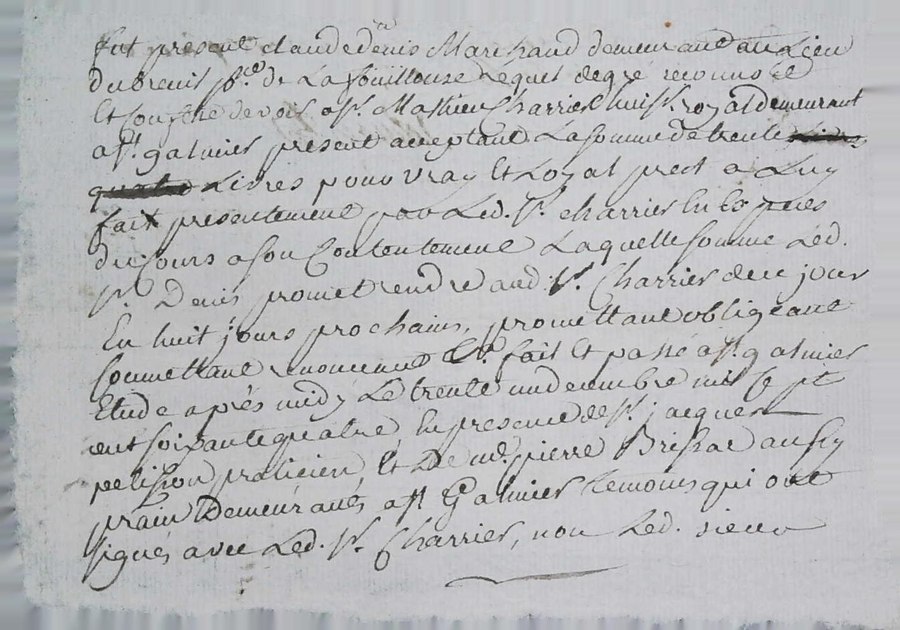 fut present claude denis Marchand demeurant au Lieu
du breuil p.ce de La fouillouse Lequel degré reconnoit
Et confesse devoir a S.r Mathieu Charrier huiss.r royal demeurant
a S.t galmier present acceptant La somme de trente
quatre Livres pour vray Et Loyal prest a Luy
fait presentement par Led. S.r charrier En Espèces
du Cours a son Contentement Laquelle somme Led.
S.r Denis promet rendre aud. S.r Charrier de ce jour
En huit jours prochains, promettant obligeant
soumettant renonceant &.a fait Et passé a S.t galmier
Etude après midy Le trente un decembre mil sept
cent soixante quatre En presence de S.r jacques
pelisson praticien Et De me. pierre Brissac aussy
prain Demeurants a S.t Galmier temoins qui ont
signés avec Led. S.r Charrier, non Led. sieur